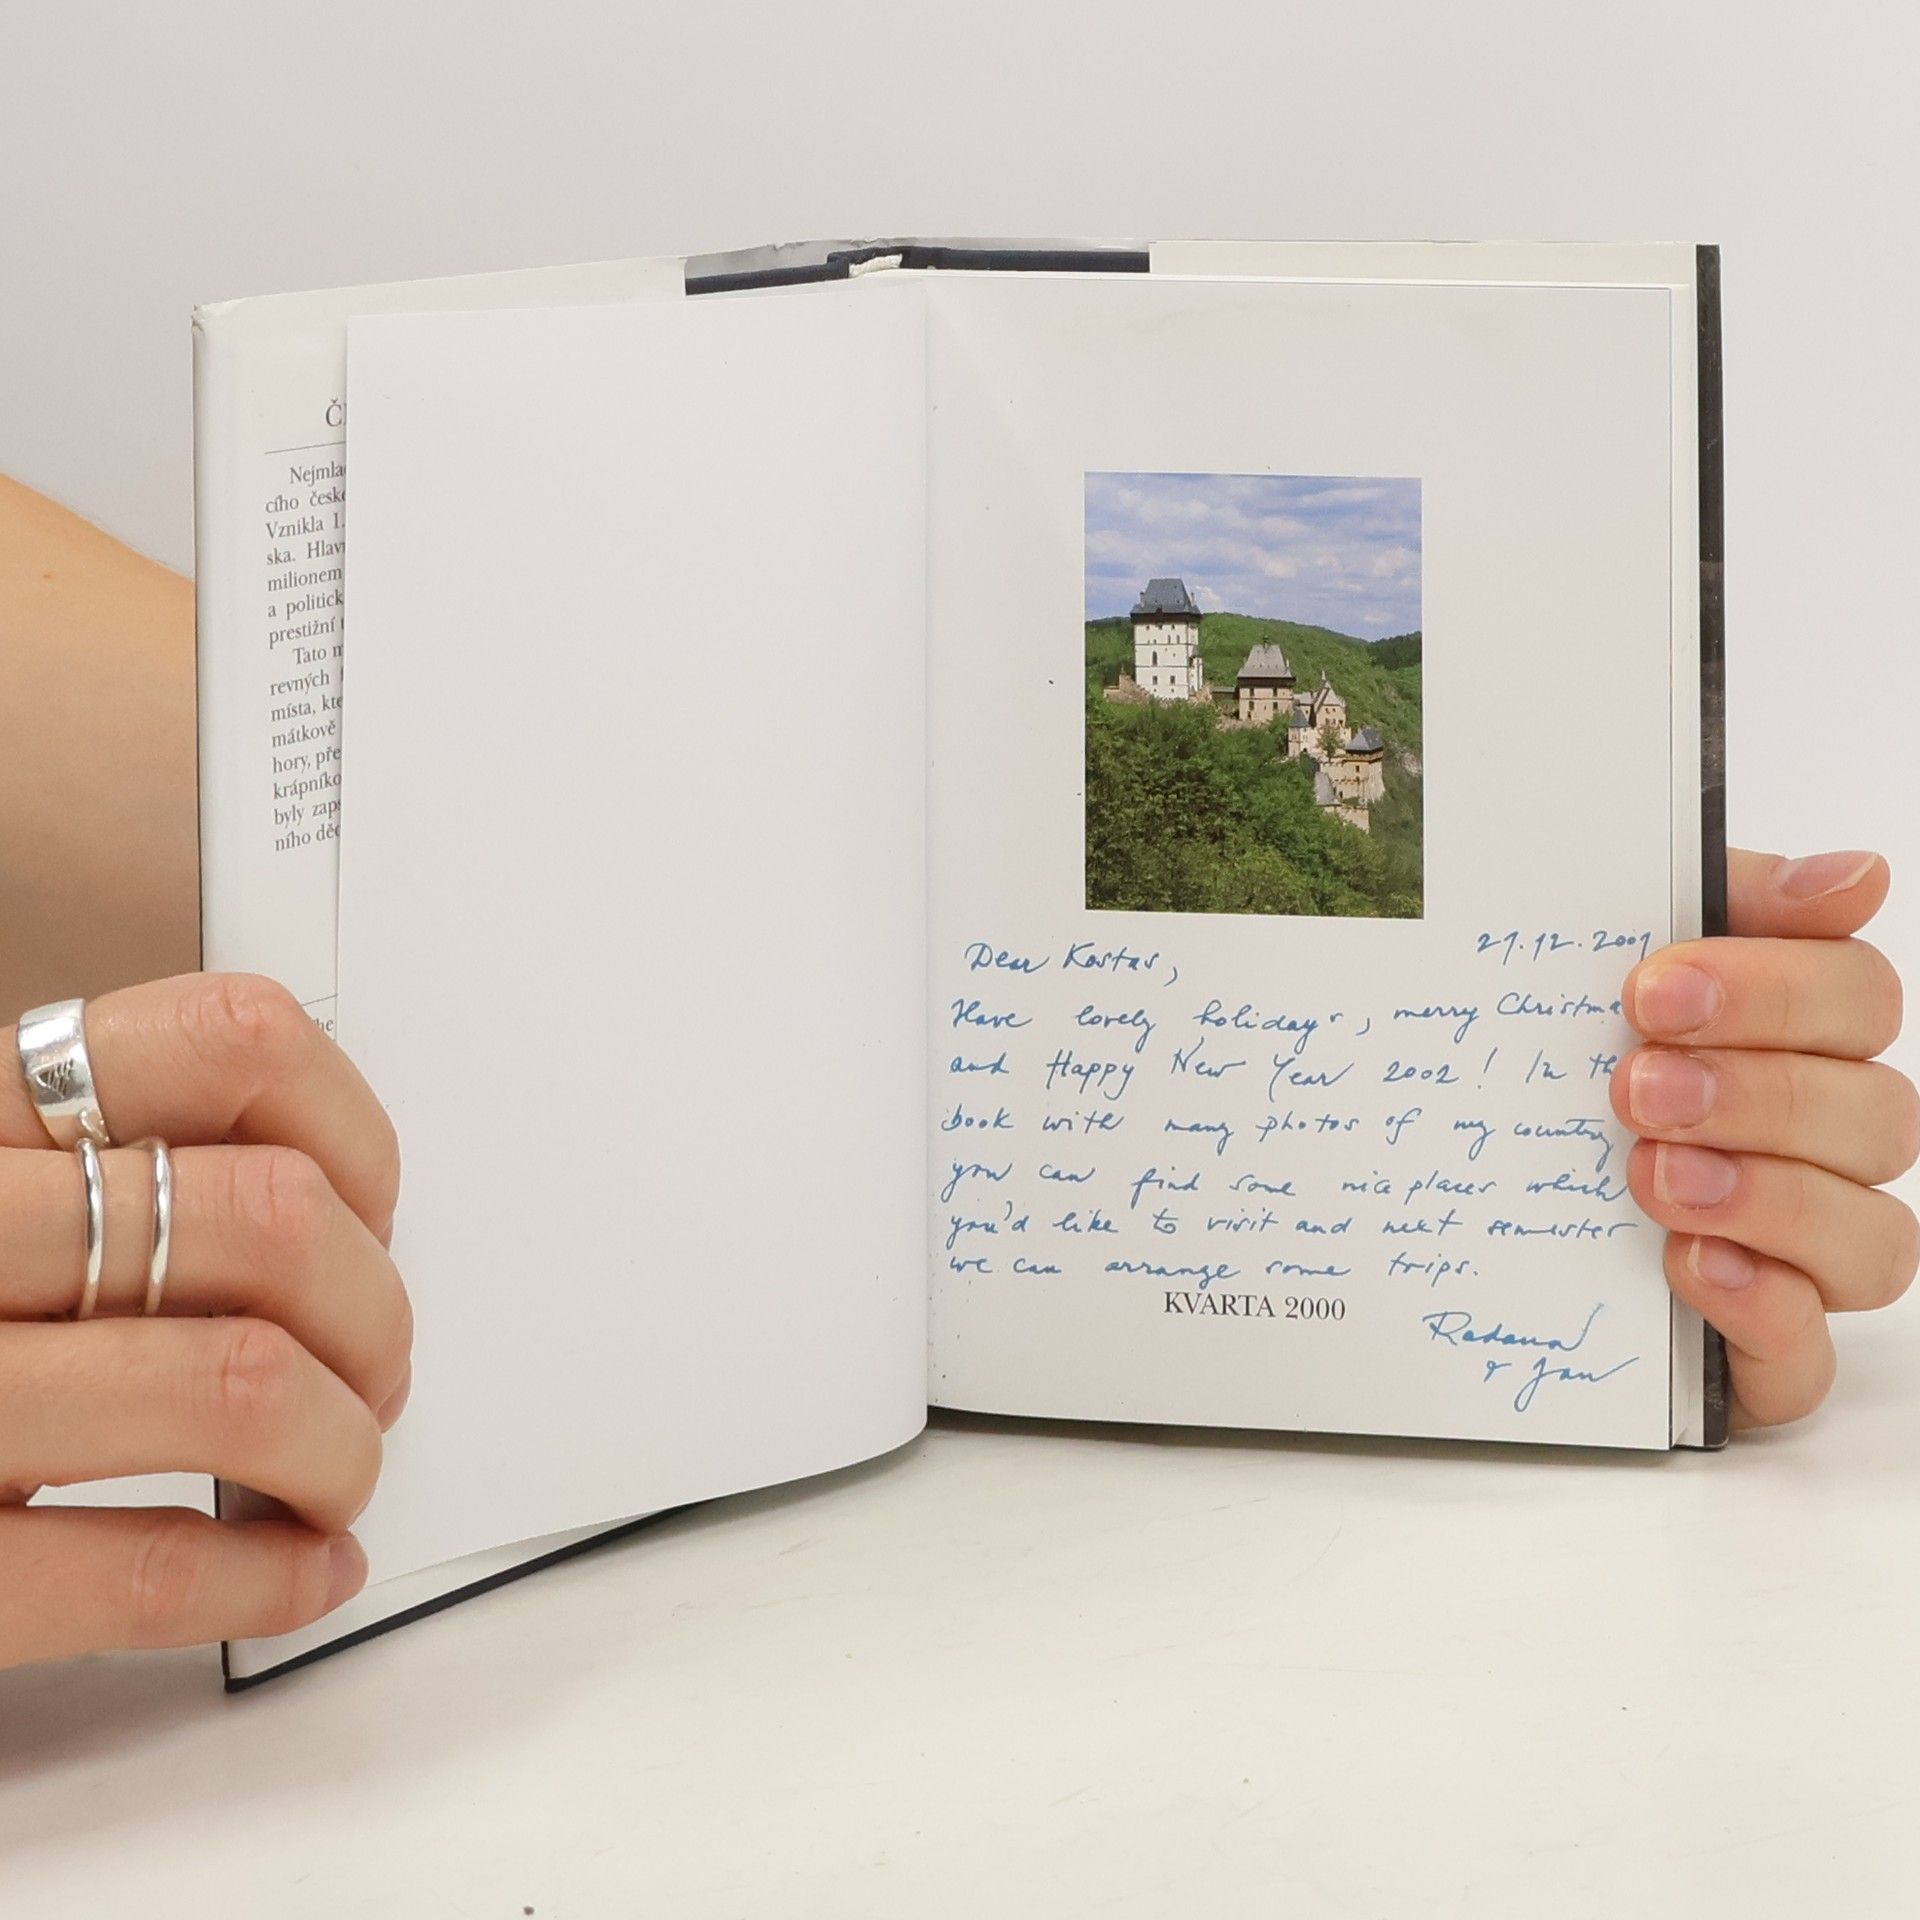 Č
Nejmla
cího česk
Vznikla 1.
ska. Hlav
milionem
a politick
prestižní
Tato m
revných
místa, kte
mátkově
hory, pře
krápníko
byly zap
ního děd
he
Dear Kostas, 21.12.2001
Have lovely holidays, merry Christma
and Happy New Year 2002! In th
book with many photos of my country
you can find some nice places which
you'd like to visit and next semester
we can arrange some trips.
KVARTA 2000
Radana
& Jan